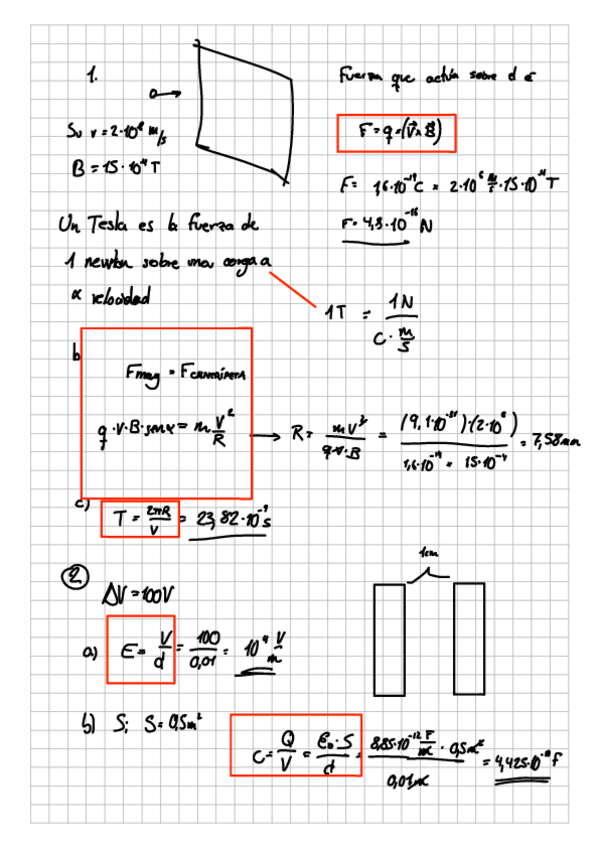 1.
Fuerza que actúa sobre el e
Si v = 2·10⁶ m/s
F = q·(V⃗ x B⃗)
B = 15·10⁻⁴ T
F = 1,6·10⁻¹⁹ C × 2·10⁶ m/s · 15·10⁻⁴ T
F = 4,8·10⁻¹⁶ N
Un Tesla es la fuerza de
1 newton sobre una carga a
velocidad
1T = 1N / (C · m/s)
b
Fmag = Fcentrípeta
q·v·B·senα = m V²/R → R = mV²/(q·v·B) = (9,1·10⁻³¹)·(2·10⁶) / (1,6·10⁻¹⁹ × 15·10⁻⁴) = 7,58mm
c)
T = 2πR/V = 23,82·10⁻⁹ s
1cm
②
ΔV = 100V
a) E = V/d = 100/0,01 = 10⁴ V/m
b) S: S = 0,5m²
C = Q/V = ε₀·S/d = 8,85·10⁻¹² F/m · 0,5m² / 0,01m = 4,425·10⁻¹⁰ F